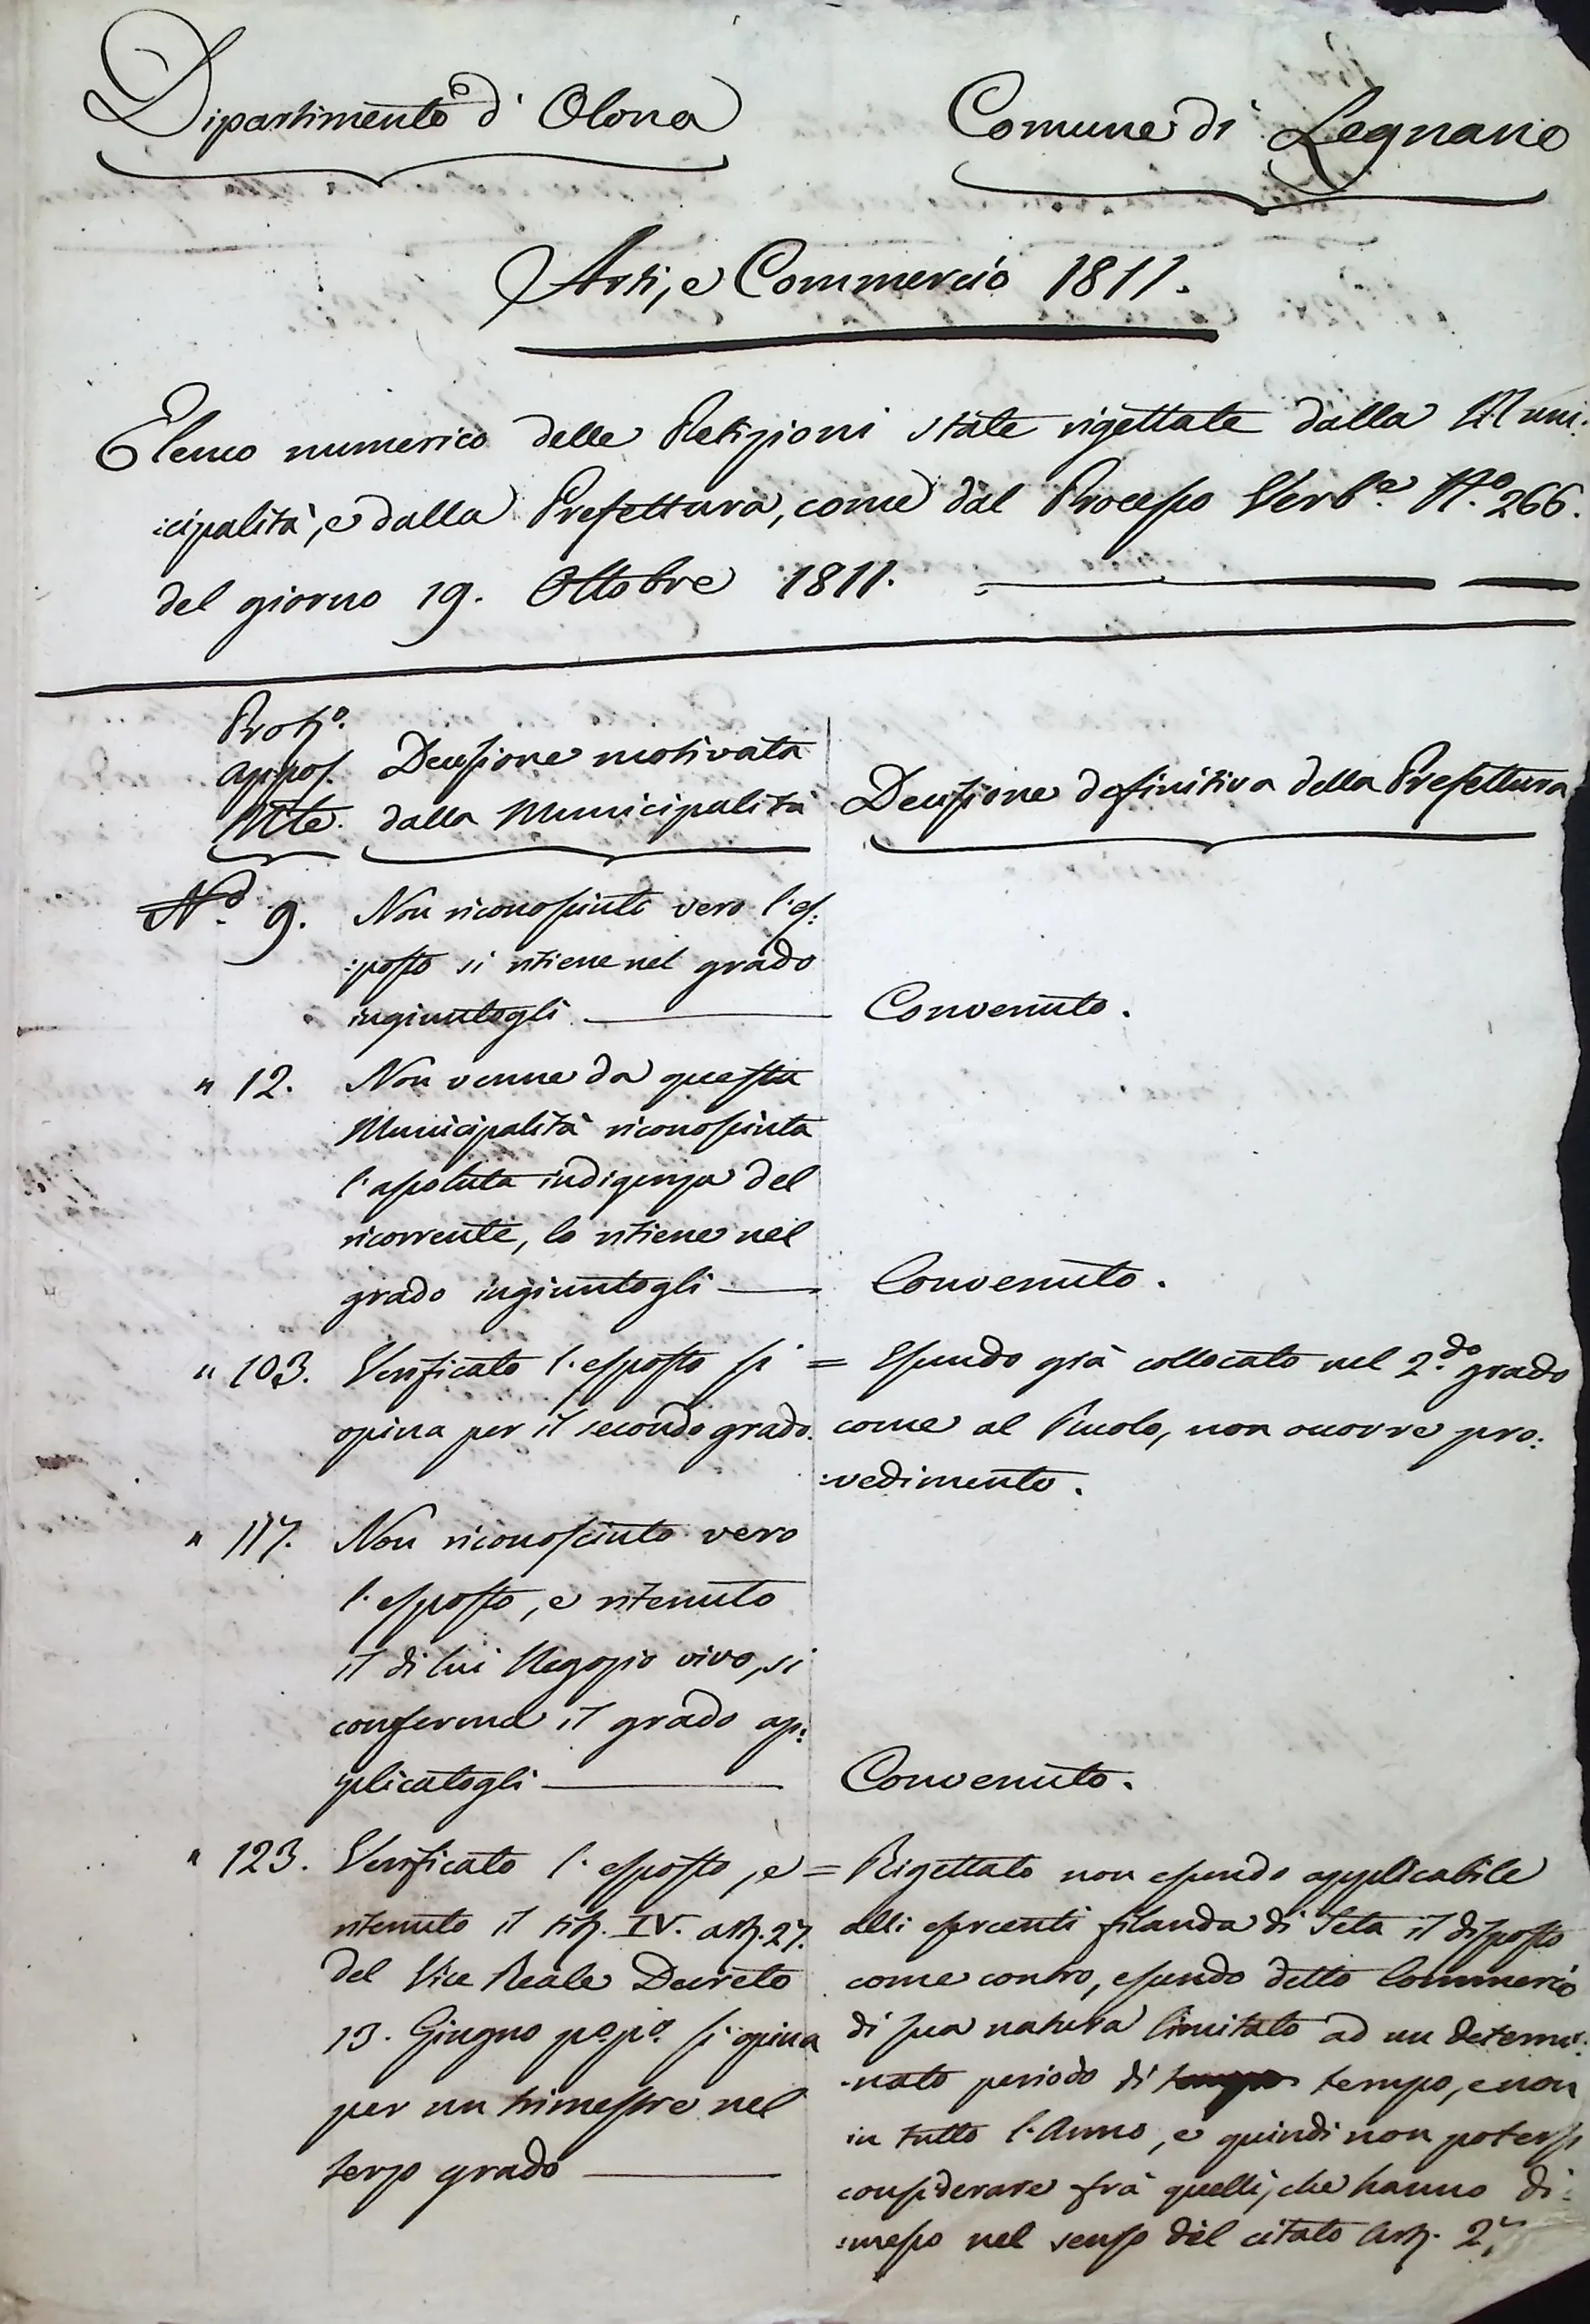 Dipartimento d'Olona
Comune di Legnano
Arti, e Commercio 1811.
Elenco numerico delle Petizioni state rigettate dalla Muni:
:cipalità, e dalla Prefettura, come dal Processo Verb.e N.o 266.
del giorno 19. Ottobre 1811.
Appos.
Decisione motivata
dalla Municipalità
Decisione definitiva della Prefettura
N.o 9. Non riconosciuto vero l'es:
:posto si ritiene nel grado
ingiuntogli
Convenuto.
" 12. Non venne da questa
Municipalità riconosciuta
l'assoluta indigenza del
ricorrente, lo ritiene nel
grado ingiuntogli
Convenuto.
" 103. Verificato l'esposto si
opina per il secondo grado.
= Essendo già collocato nel 2.do grado
come al Ruolo, non occorre pro:
:vedimento.
" 117. Non riconosciuto vero
l'esposto, e ritenuto
il di lui Negozio vivo, si
conferma il grado ap:
:plicatogli
Convenuto.
" 123. Verificato l'esposto, e
ritenuto il tit. IV. art. 27.
del Vice Reale Decreto
13. Giugno p.o p.o si opina
per un trimestre nel
terzo grado
= Rigettato non essendo applicabile
alli esercenti filanda di Seta il disposto
come contro, essendo detto Commercio
di sua natura limitato ad un determi:
:nato periodo di tempo, e non
in tutto l'Anno, e quindi non potersi
considerare frà quelli, che hanno di:
:messo nel senso del citato Art. 27